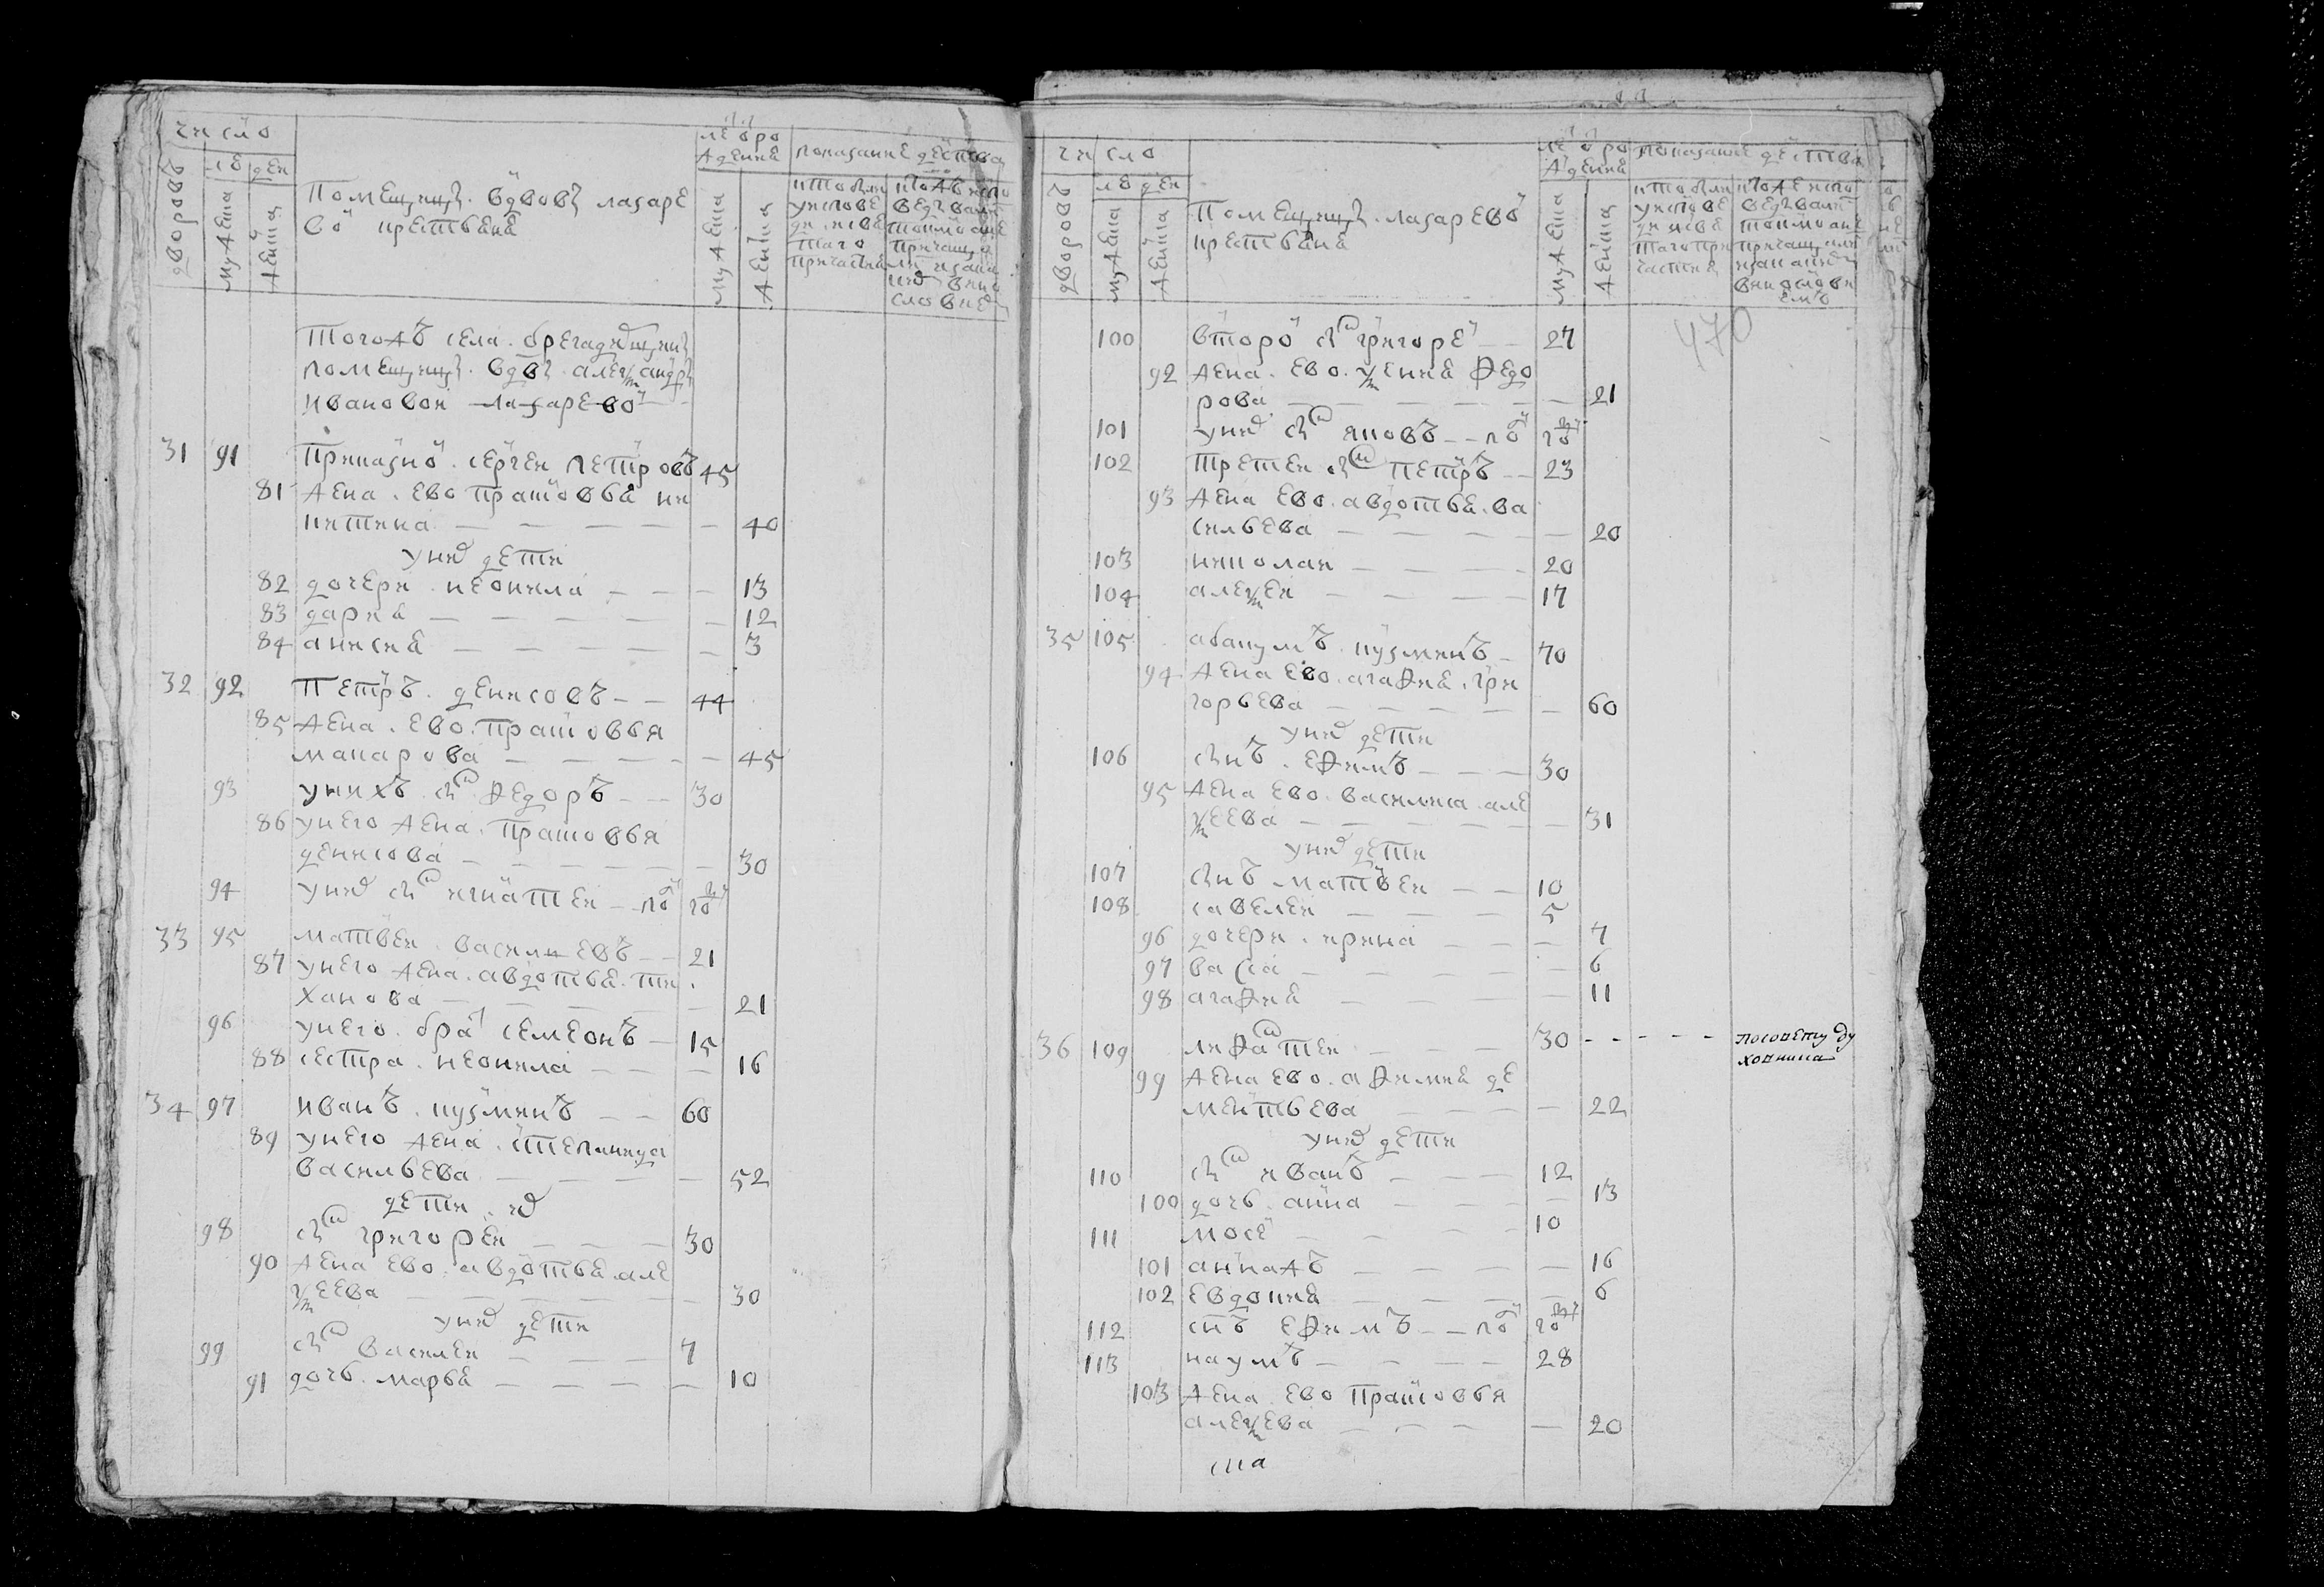 число
лю дей
дворовъ
мужеска
женска
Помещицы вдовы лазаре
вой крестьяня
лет от ро
ждения
мужеска
женска
показание действа
кто были
у исповеди
и св
таго
причастия
Тогожъ села брегадирши
помещицы вдовы александры
ивановой лазаревой
31 91 Приказной сергеи петровъ 45
81 жена ево прасковья ни
китина 40
у них дети
82 дочери неонила 13
83 дарья 12
84 анисия 3
32 92 Петръ денисовъ 44
85 жена ево прасковья
макарова 45
93 у нихъ сын федоръ 30
86 у него жена прасковья
денисова 30
94 у них сын игнатеи пол году
33 95 матвеи василиевъ 21
87 у него жена авдотья ти
ханова 21
96 у него брат семеонъ 15
88 сестра неонила 16
34 97 иванъ кузминъ 60
89 у него жена степанида
васильева 52
дети их
98 сын григореи 30
90 жена ево авдотья але
ксеева 30
у них дети
99 сын василеи 7
91 дочь марья 10
число
лю дей
дворовъ
мужеска
женска
Помещицы лазаревой
крестьяня
лет от ро
ждения
мужеска
женска
показание действа
кто были
у исповеди
и св
таго при
частия
470
100 второй сын григорей 27
92 жена ево ксения федо
рова 21
101 у них сын яковъ пол году
102 третеи сын петръ 23
93 жена ево авдотья ва
сильева 20
103 николаи 20
104 алексеи 17
35 105 абакумъ кузминъ 70
94 жена ево агафия гри
горьева 60
у них дети
106 сынъ ефимъ 30
95 жена ево василиса але
ксеева 31
у них дети
107 сынъ матвеи 10
108 савелеи 5
96 дочери ирина 7
97 васса 6
98 агафия 11
36 109 лифантеи 30 по совету ду
ховника
99 жена ево афимия де
ментьева 22
у них дети
110 сын иванъ 12
100 дочь анна 13
111 мосей 10
101 аннажъ 16
102 евдокия 6
112 сынъ ефимъ пол году
113 наумъ 28
103 жена ево прасковья
алексева 20